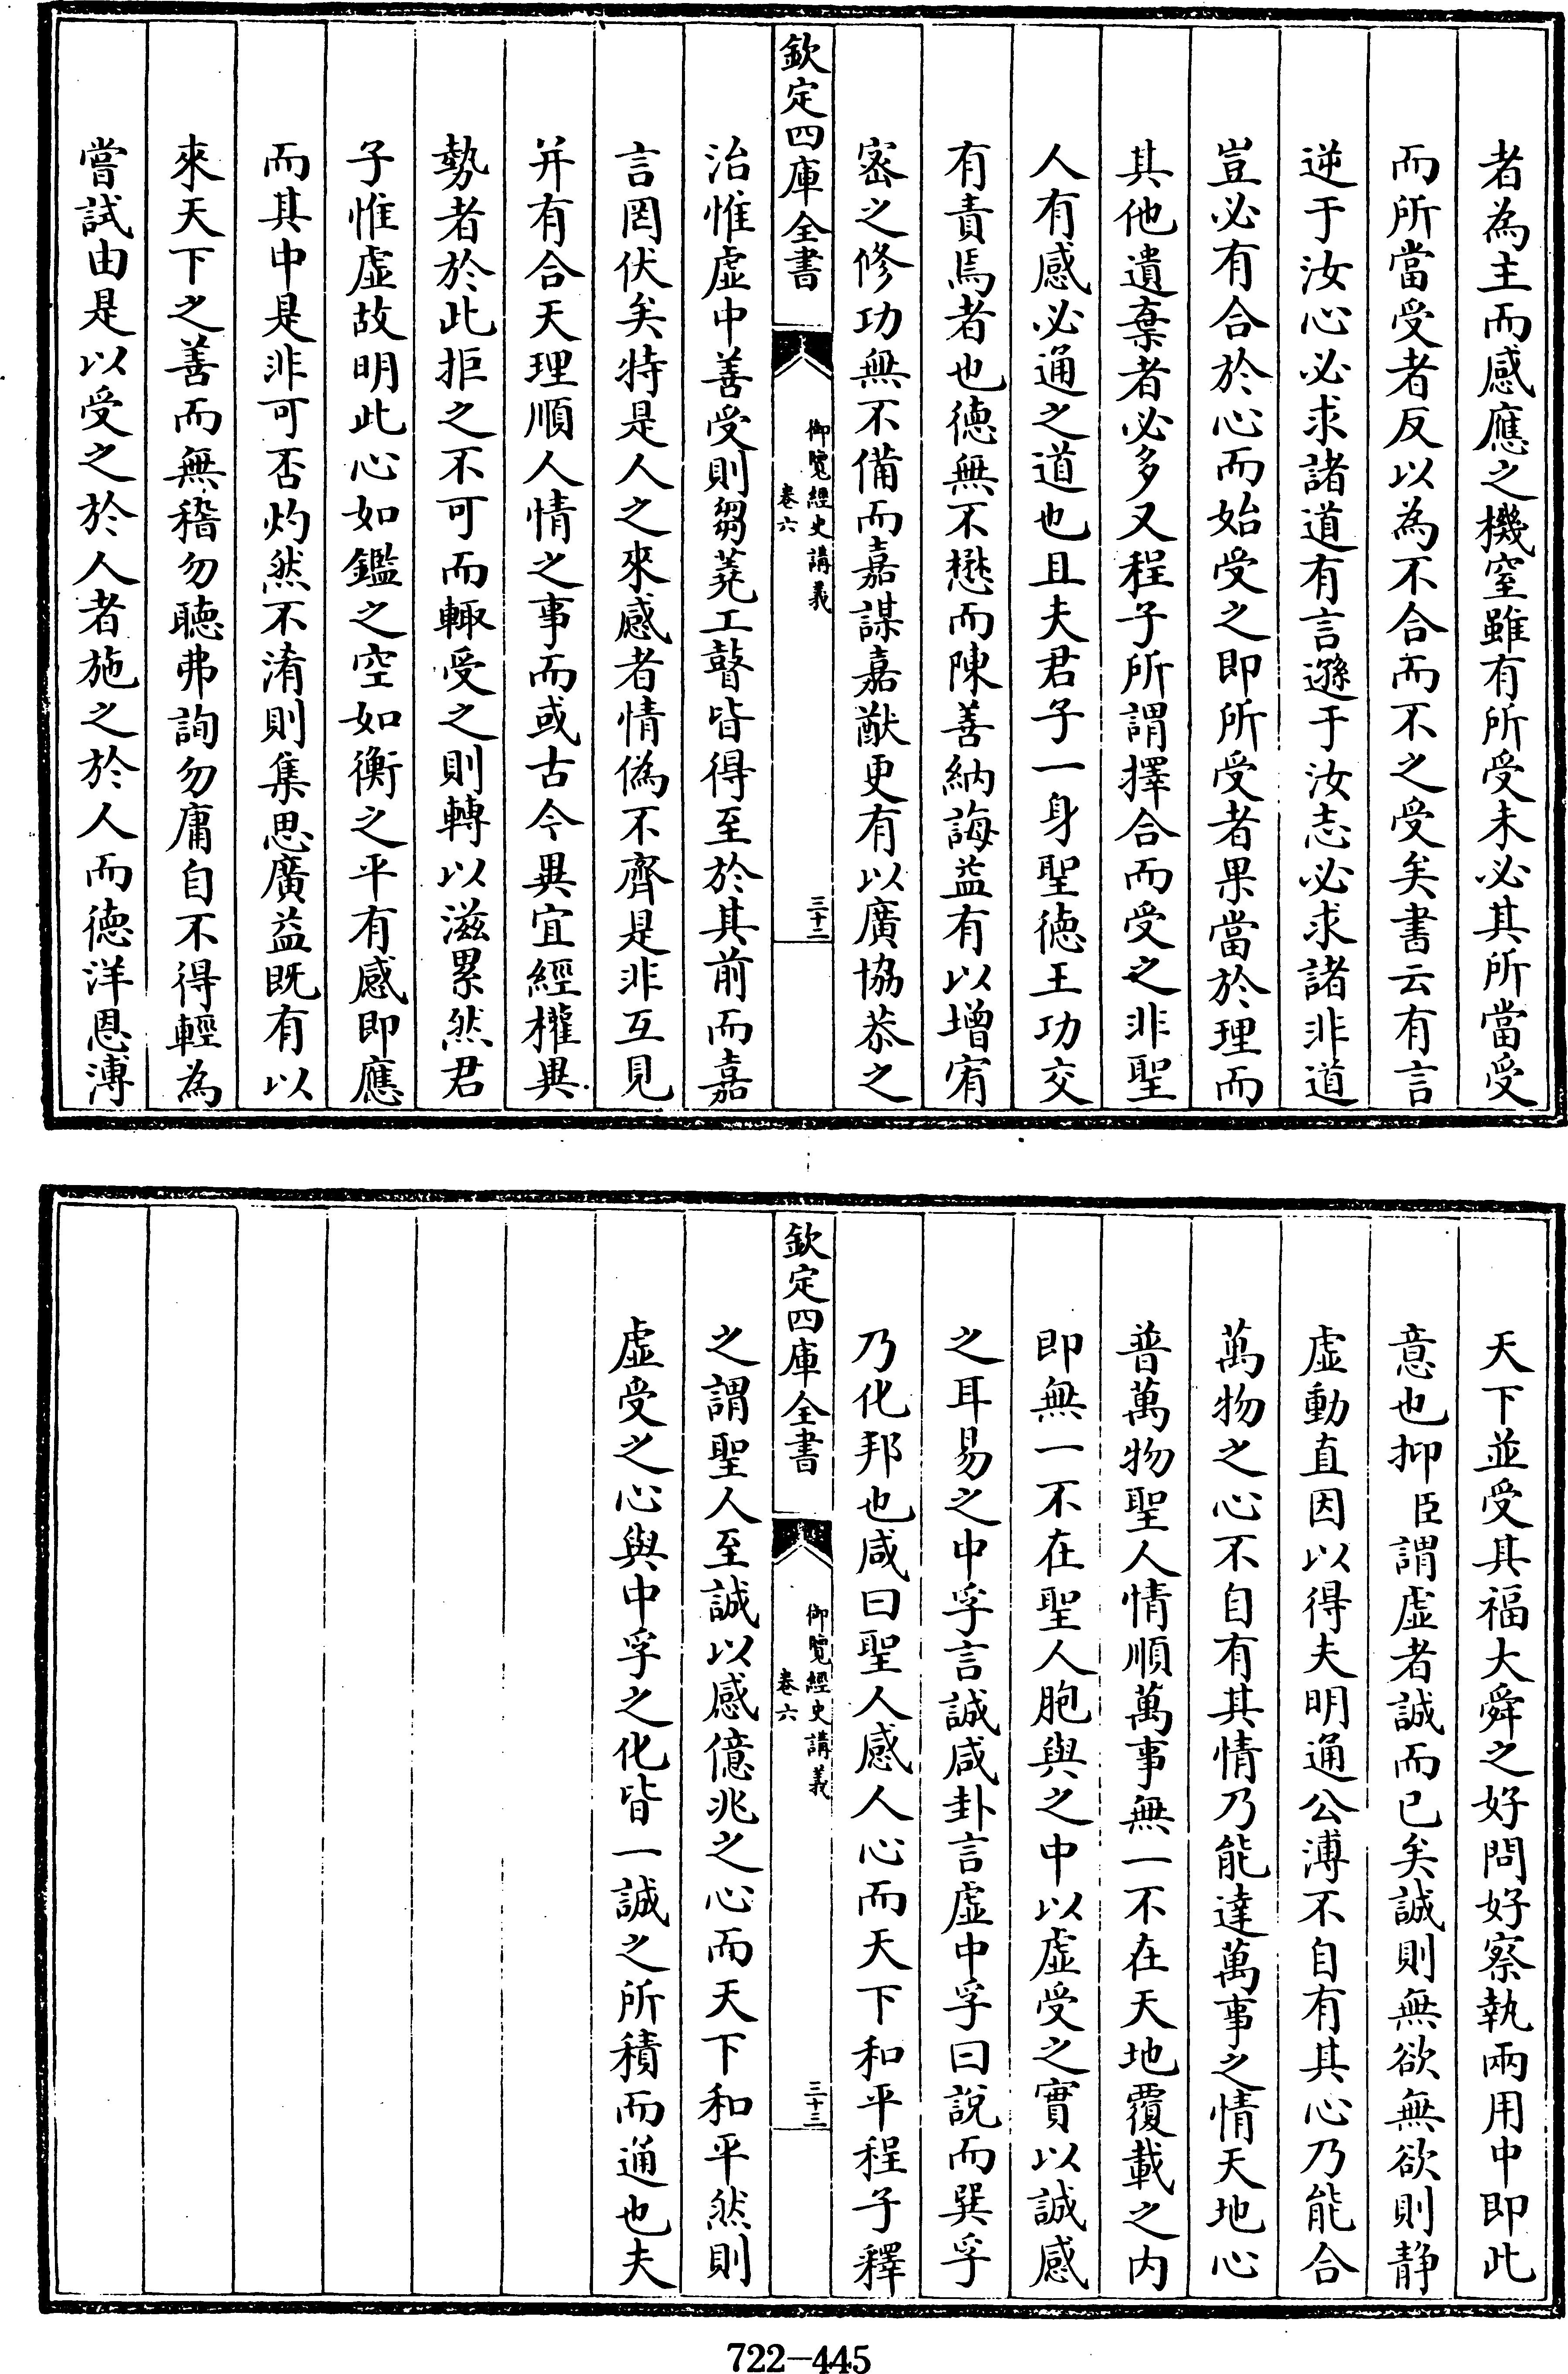 者為主而感應之機窒雖有所受未必其所當受
而所當受者反以為不合而不之受矣書云有言
逆于汝心必求諸道有言遜于汝志必求諸非道
豈必有合於心而始受之即所受者果當於理而
其他遺棄者必多又程子所謂擇合而受之非聖
人有感必通之道也且夫君子一身聖德王功交
有責焉者也德無不懋而陳善納誨益有以增宥
密之修功無不備而嘉謀嘉猷更有以廣協恭之
欽定四庫全書
御覽經史講義
卷六
三十二
治惟虛中善受則芻蕘工瞽皆得至於其前而嘉
言罔伏矣特是人之來感者情偽不齊是非互見
并有合天理順人情之事而或古今異宜經權異
勢者於此拒之不可而輒受之則轉以滋累然君
子惟虛故明此心如鑑之空如衡之平有感即應
而其中是非可否灼然不淆則集思廣益既有以
來天下之善而無稽勿聽弗詢勿庸自不得輕為
嘗試由是以受之於人者施之於人而德洋恩溥
天下並受其福大舜之好問好察執兩用中即此
意也抑臣謂虛者誠而已矣誠則無欲無欲則静
虛動直因以得夫明通公溥不自有其心乃能合
萬物之心不自有其情乃能達萬事之情天地心
普萬物聖人情順萬事無一不在天地覆載之内
即無一不在聖人胞與之中以虛受之實以誠感
之耳易之中孚言誠咸卦言虛中孚曰説而巽孚
乃化邦也咸曰聖人感人心而天下和平程子釋
欽定四庫全書
御覽經史講義
卷六
三十三
之謂聖人至誠以感億兆之心而天下和平然則
虛受之心與中孚之化皆一誠之所積而通也夫
722-445